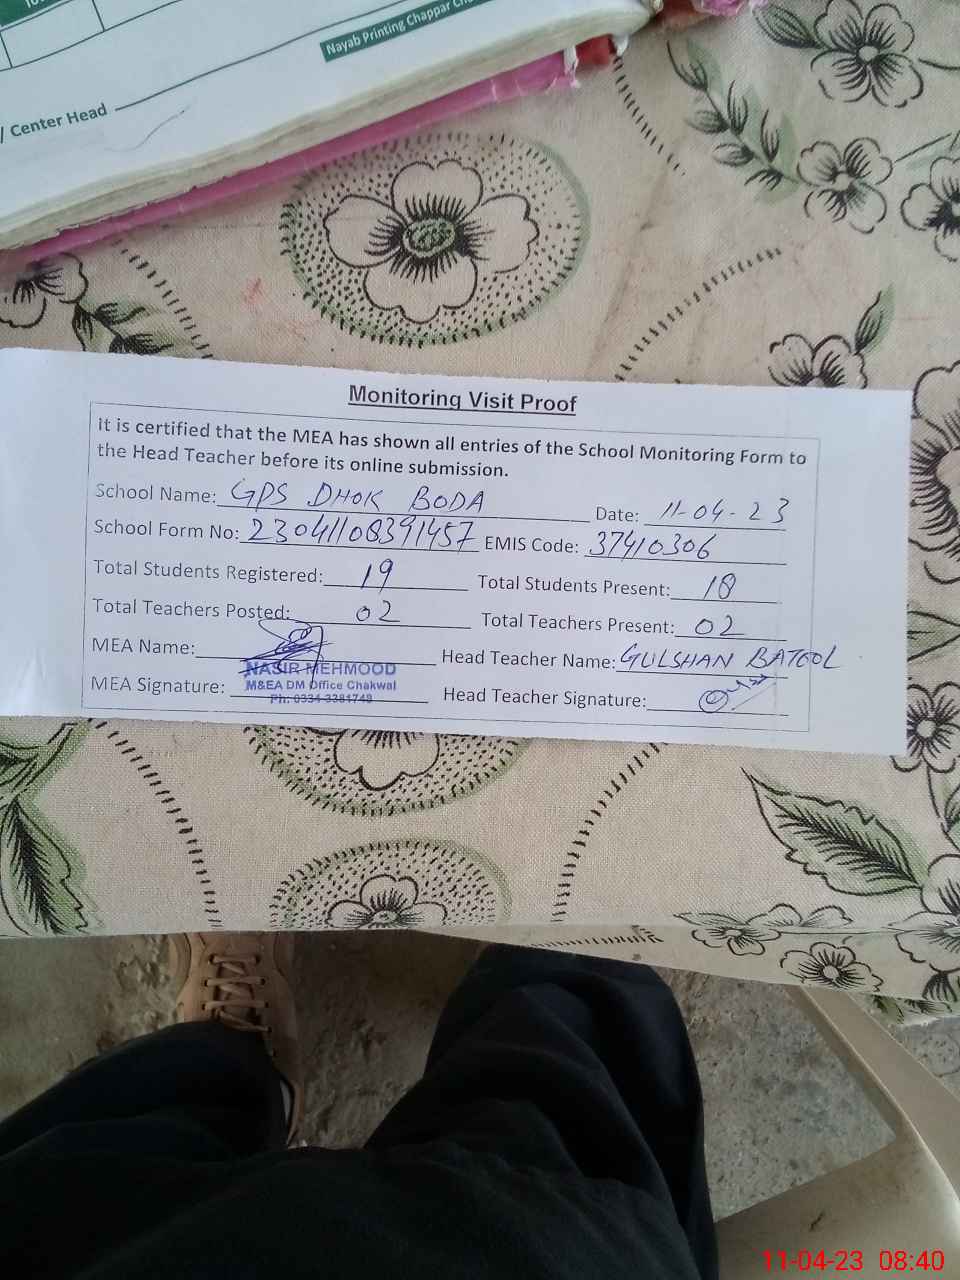 Nayab Printing Chappar
/ Center Head
Monitoring Visit Proof
It is certified that the MEA has shown all entries of the School Monitoring Form to
the Head Teacher before its online submission.
School Name: GPS DHOK BODA Date: 11-04-23
School Form No: 23041108391457 EMIS Code: 37410306
Total Students Registered: 19 Total Students Present: 18
Total Teachers Posted: 02 Total Teachers Present: 02
MEA Name: Head Teacher Name: GULSHAN BATOOL
NASIR MEHMOOD
M&EA DM Office Chakwal
MEA Signature: Head Teacher Signature:
Ph: 0334-3381748
11-04-23 08:40